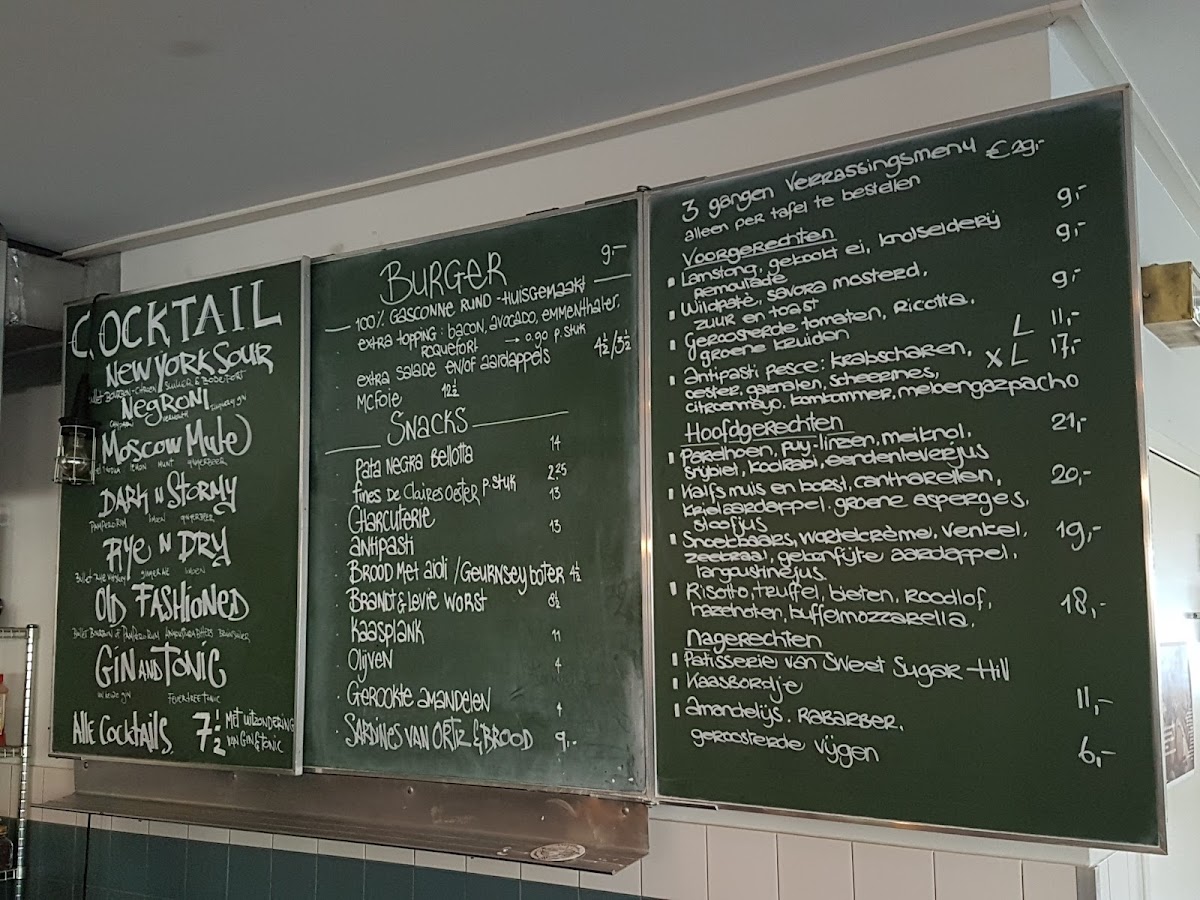 COCKTAIL
NEW YORK SOUR
NEGRONI
Moscow Mule
DARK N STORMY
RYE N DRY
GINGER ALE
OLD FASHIONED
GIN AND TONIC
FEVERTREE TONIC
Alle Cocktails 7½ MET UITZONDERING
VAN GIN & TONIC
BURGER 9,-
100% GASCONNE RUND - HUISGEMAAKT
extra topping: bacon, avocado, emmenthaler,
roquefort → 0.90 p.stuk
extra salade en/of aardappels 4½/3½
MCFOIE 12½
SNACKS
Pata Negra Bellotta 14
fines De Claires OESTER p.stuk 2,25
Charcuterie 13
antipasti 13
BROOD MET aioli / GEURNSEY BOTER 4½
BRANDT & LEVIE WORST 8½
Kaasplank 11
Olijven 4
GEROOKTE AMANDELEN 4
SARDINES VAN ORTIZ & BROOD 9,-
3 gangen Verrassingsmenu €29,-
alleen per tafel te bestellen
Voorgerechten
Lamstong, gekookt ei, knolselderij 9,-
remoulade
Wildpaté, savora mosterd, 9,-
zuur en toast
Geroosterde tomaten, Ricotta, 9,-
groene kruiden
Antipasti pesce: krabscharen, L 11,-
oester, garnalen, scheermes, XL 17,-
citroenmayo, komkommer, meloengazpacho
Hoofdgerechten
Parelhoen, puy-linzen, meiknol, 21,-
snijbiet, koolrabi, eendenleverjus
Kalfs muis en borst, cantharellen, 20,-
krielaardappel, groene asperges,
stoofjus
Snoekbaars, wortelcrème, venkel, 19,-
zeekraal, gekonfijte aardappel,
langoustinejus
Risotto, truffel, bieten, roodlof, 18,-
hazelnoten, buffelmozzarella.
Nagerechten
Patisserie van Sweet Sugar Hill
Kaasbordje 11,-
Amandelijs, RABARBER,
geroosterde vijgen 6,-